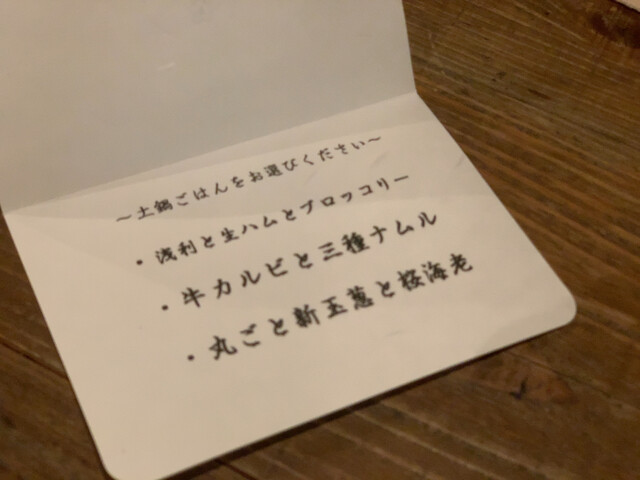 ～土鍋ごはんをお選びください～
・浅利と生ハムとブロッコリー
・牛カルビと三種ナムル
・丸ごと新玉葱と桜海老